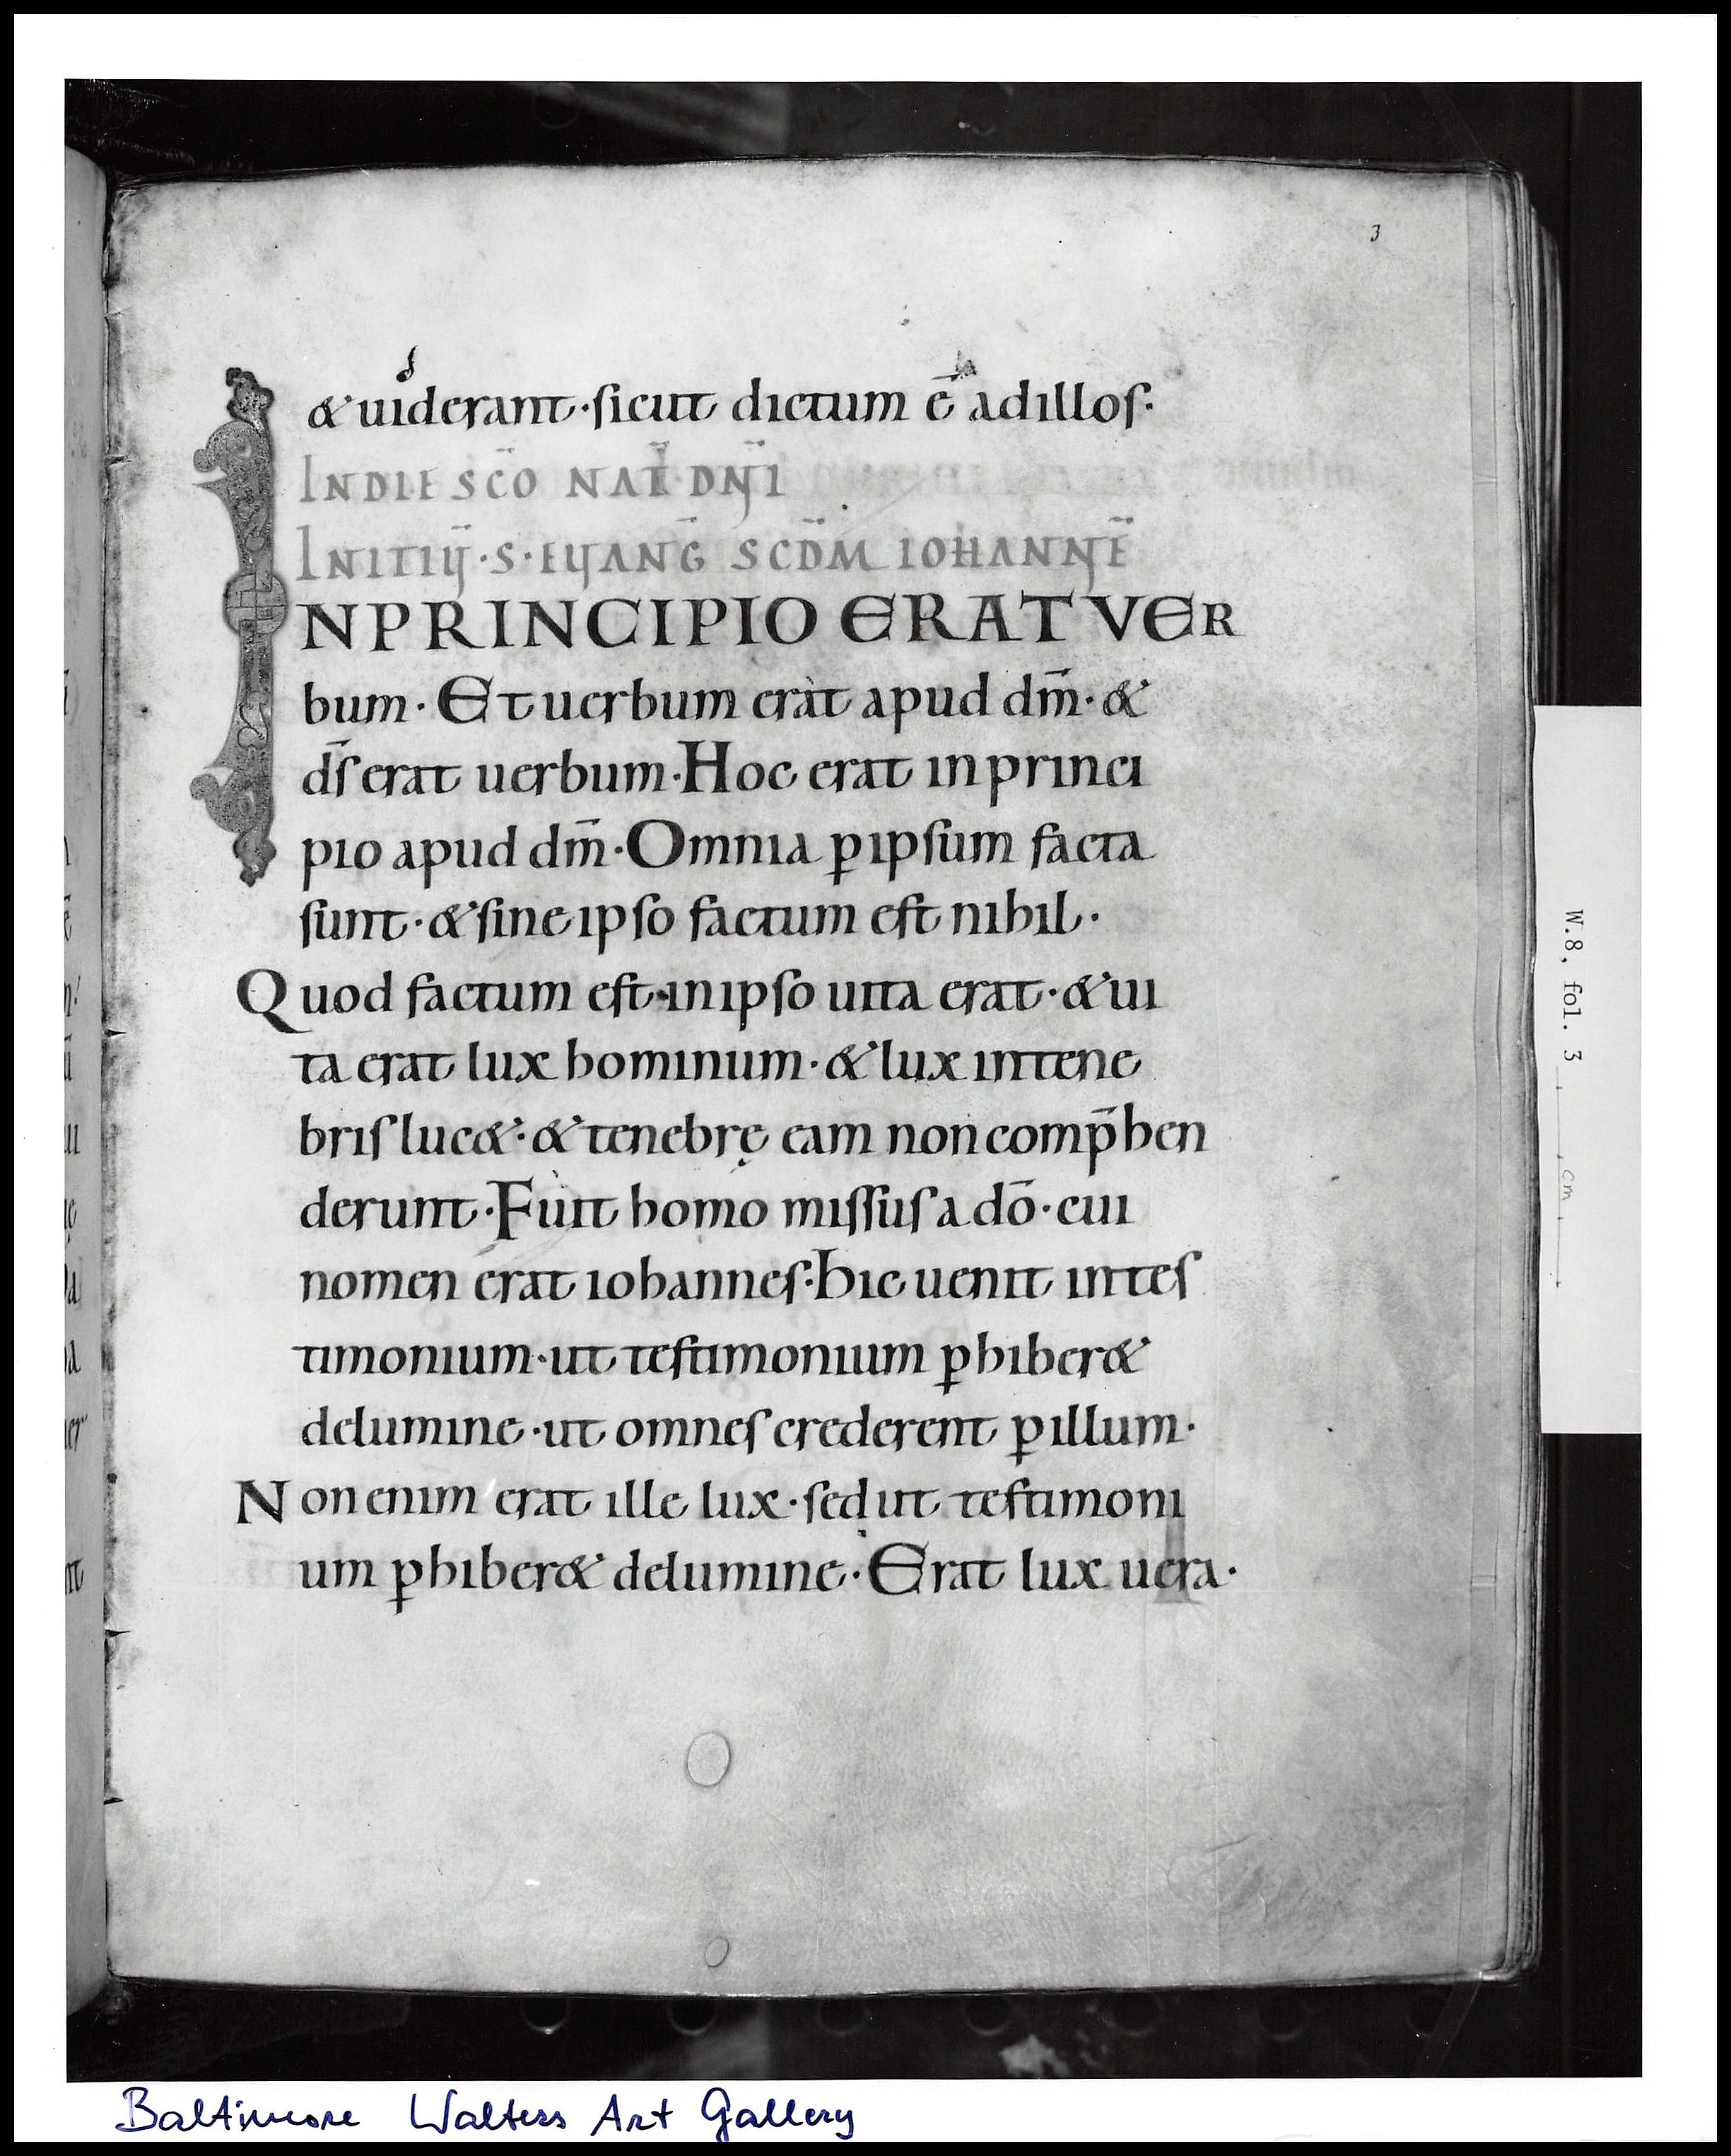 3
& uiderant · sicut dictum ē ad illos:
IN DIE SC̄O NAT̄ DN̄I
INITIŪ · S · EUANḠ SCD̄M IOHANNĒ
IN PRINCIPIO ERAT VER
bum · Et uerbum erat apud dm̄ · &
ds̄ erat uerbum · Hoc erat in princi
pio apud dm̄ · Omnia ꝑ ipsum facta
sunt · & sine ipso factum est nihil ·
Quod factum est · in ipso uita erat · & ui
ta erat lux hominum · & lux in tene
bris luc& · & tenebrę eam non comp̄hen
derunt · Fuit homo missus a dō · cui
nomen erat iohannes · hic uenit in tes
timonium · ut testimonium ꝑhiber&
de lumine · ut omnes crederent ꝑ illum ·
Non enim erat ille lux · sed ut testimoni
um ꝑhiber& de lumine · Erat lux uera ·
W.8, fol. 3
cm
Baltimore Walters Art Gallery